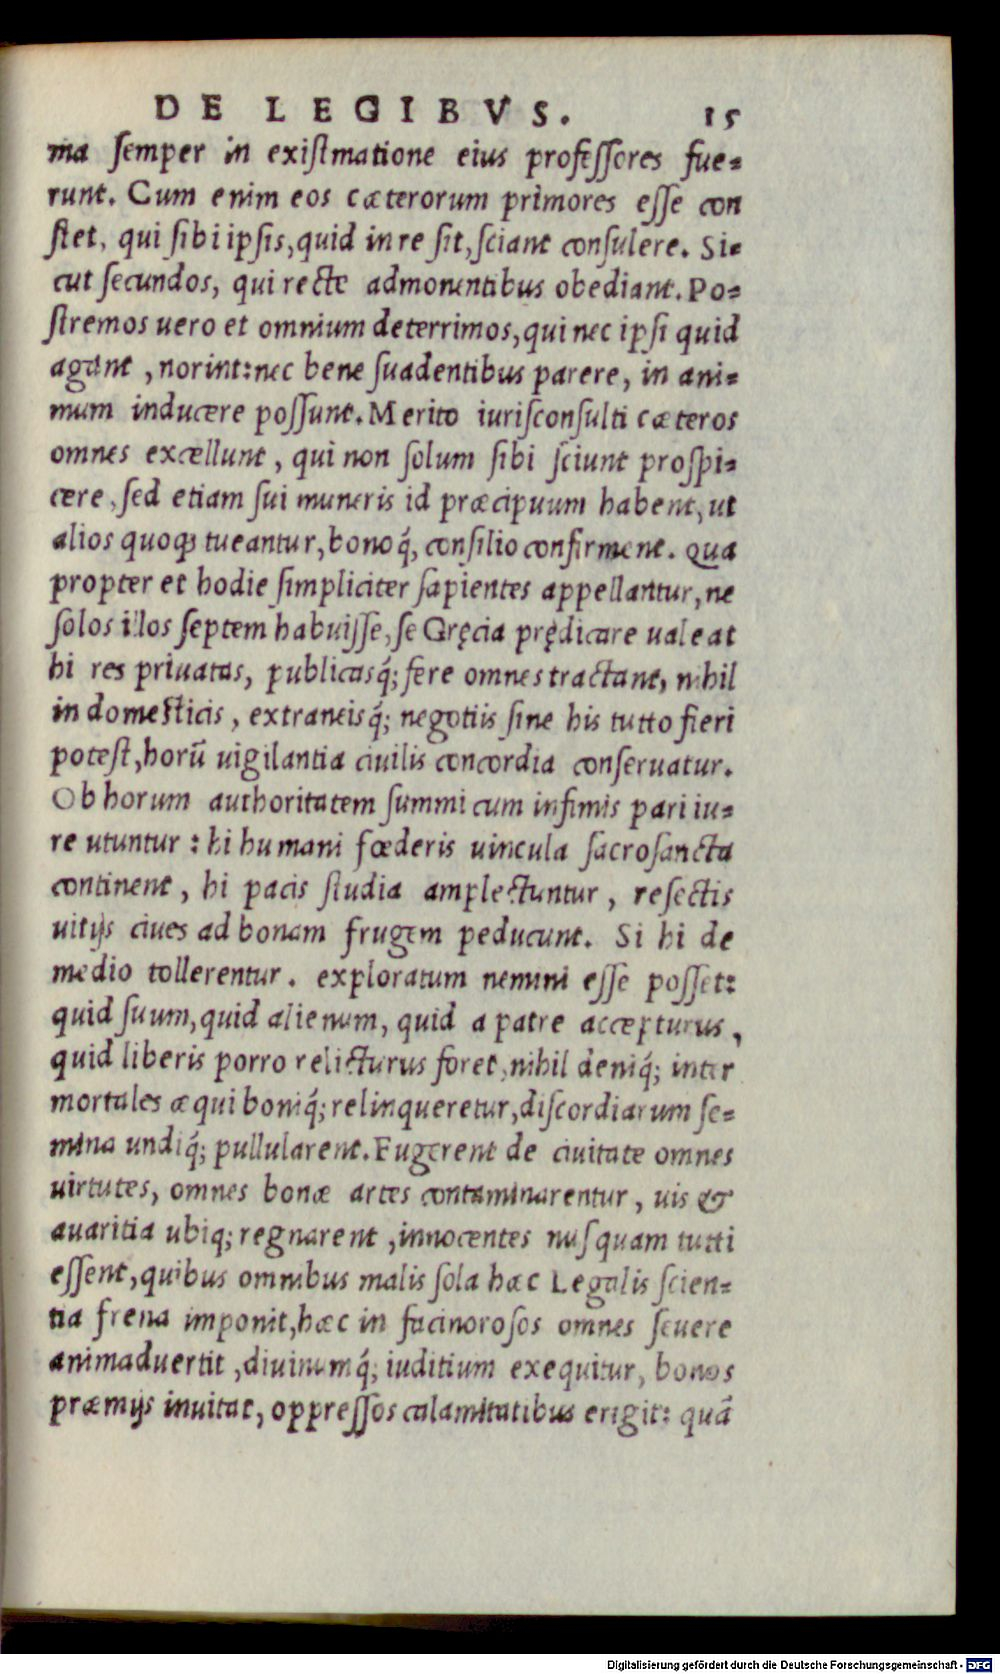 DE LEGIBVS. 15
ma semper in existmatione eius professores fue=
runt. Cum enim eos cæterorum primores esse con
stet, qui sibi ipsis, quid in re sit, sciant consulere. Si=
cut secundos, qui recte admonentibus obediant. Po=
stremos uero et omnium deterrimos, qui nec ipsi quid
agant, norint: nec bene suadentibus parere, in ani=
mum inducere possunt. Merito iurisconsulti cæteros
omnes excellunt, qui non solum sibi sciunt prospi=
cere, sed etiam sui muneris id præcipuum habent, ut
alios quoq; tueantur, bonoq́, consilio confirment. Qua
propter et hodie simpliciter sapientes appellantur, ne
solos illos septem habuisse, se Gręcia prędicare ualeat
hi res priuatas, publicasq́; fere omnes tractant, nihil
in domesticis, extraneisq́; negotiis sine his tutto fieri
potest, horũ uigilantia ciuilis concordia conseruatur.
Ob horum authoritatem summi cum infimis pari iu=
re utuntur: hi humani fœderis uincula sacrosancta
continent, hi pacis studia amplectuntur, resectis
uitijs ciues ad bonam frugem peducunt. Si hi de
medio tollerentur. exploratum nemini esse posset:
quid suum, quid alienum, quid a patre accepturus,
quid liberis porro relicturus foret, nihil deniq́; inter
mortales æqui boniq́; relinqueretur, discordiarum se=
mina undiq́; pullularent. Fugerent de ciuitate omnes
uirtutes, omnes bonæ artes contaminarentur, uis &
auaritia ubiq; regnarent, innocentes nusquam tutti
essent, quibus omnibus malis sola hæc Legalis scien=
tia frena imponit, hæc in facinorosos omnes seuere
animaduertit, diuinumq́; iuditium exequitur, bonos
præmijs inuitat, oppressos calamitatibus erigit: quã
Digitalisierung gefördert durch die Deutsche Forschungsgemeinschaft - DFG